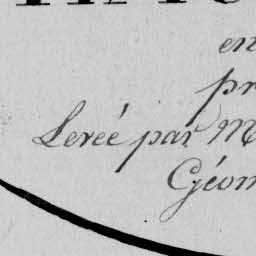 en
pr
Levée par M
Géom